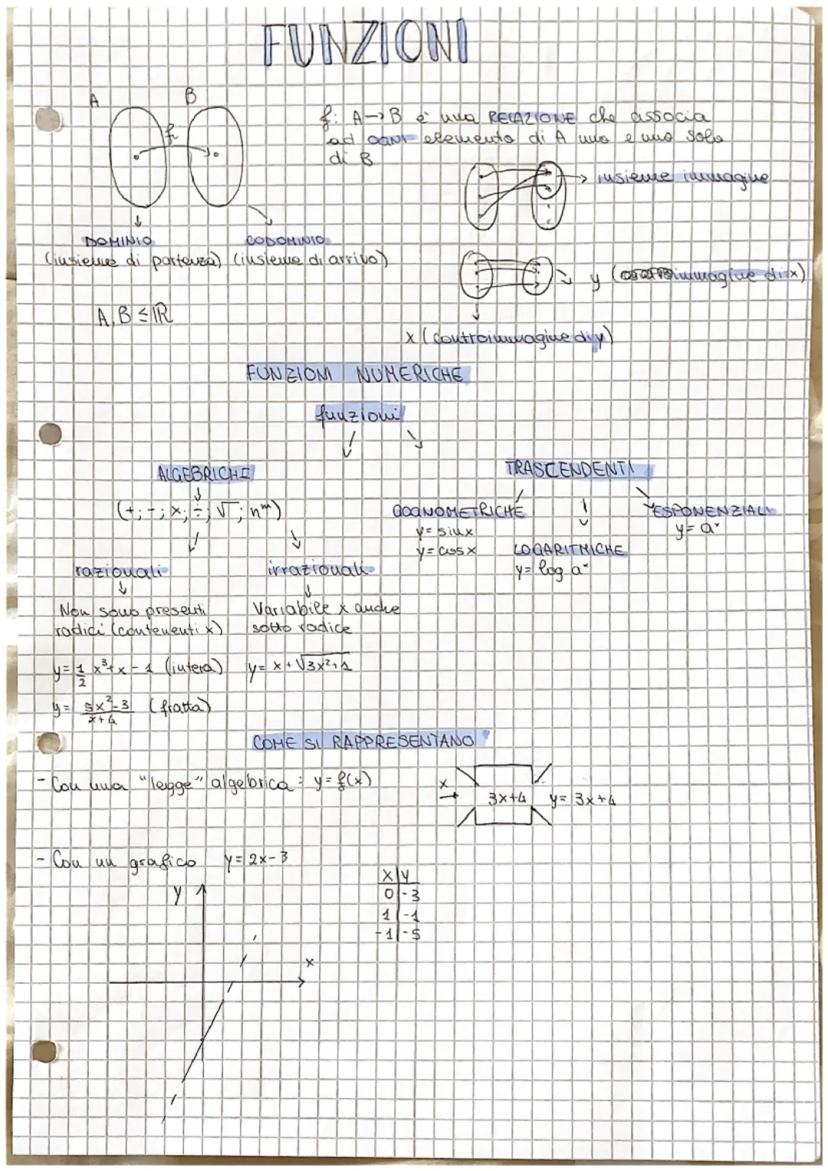 FUNZIONI
A B
f
f: A→B è una RELAZIONE che associa
ad OGNI elemento di A uno e uno solo
di B
→ insieme immagine
DOMINIO
(insieme di partenza)
CODOMINIO
(insieme di arrivo)
y (immagine di x)
A, B ⊆ ℝ
x (controimmagine di y)
FUNZIONI NUMERICHE
funzioni
ALGEBRICHE
(+; -; x; ÷; √; nᵐ)
TRASCENDENTI
GONOMETRICHE
y= sinx
y= cosx
LOGARITMICHE
y= log aˣ
ESPONENZIALI
y= aˣ
razionali
Non sono presenti
radici (contenenti x)
y= 1/2 x³+x-1 (intera)
y= 5x²-3/x+4 (fratta)
irrazionali
Variabile x anche
sotto radice
y= x+√3x²+1
COME SI RAPPRESENTANO
- Con una "legge" algebrica: y= f(x)
x → 3x+4 y= 3x+4
- Con un grafico y= 2x-3
x | y
0 | -3
1 | -1
-1 | -5
y
x